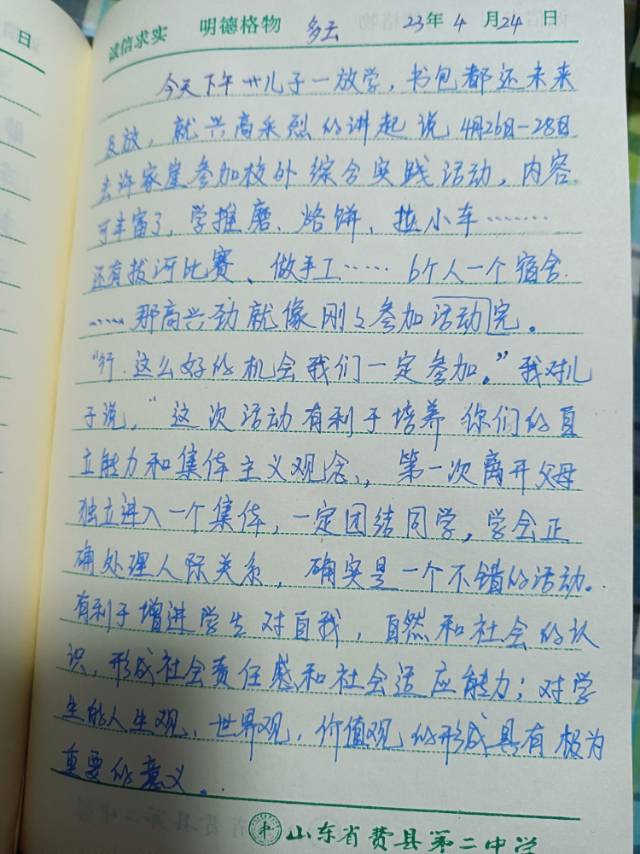 日
诚信求实 明德格物 多云 23年4月24日
今天下午 儿子一放学，书包都还未来
及放，就兴高采烈的讲起说4月26日-28日
去许家崖参加校外综合实践活动，内容
可丰富了，学推磨、烙饼、拉小车………
还有拔河比赛、做手工…… 6个人一个宿舍.
……那高兴劲就像刚刚参加活动完。
“行.这么好的机会我们一定参加。”我对儿
子说，“这次活动有利于培养你们的自
立能力和集体主义观念，第一次离开父母
独立进入一个集体，一定团结同学，学会正
确处理人际关系，确实是一个不错的活动。
有利于增进学生对自我，自然和社会的认
识，形成社会责任感和社会适应能力；对学
生的人生观、世界观，价值观的形成具有极为
重要的意义。
山东省费县第二中学